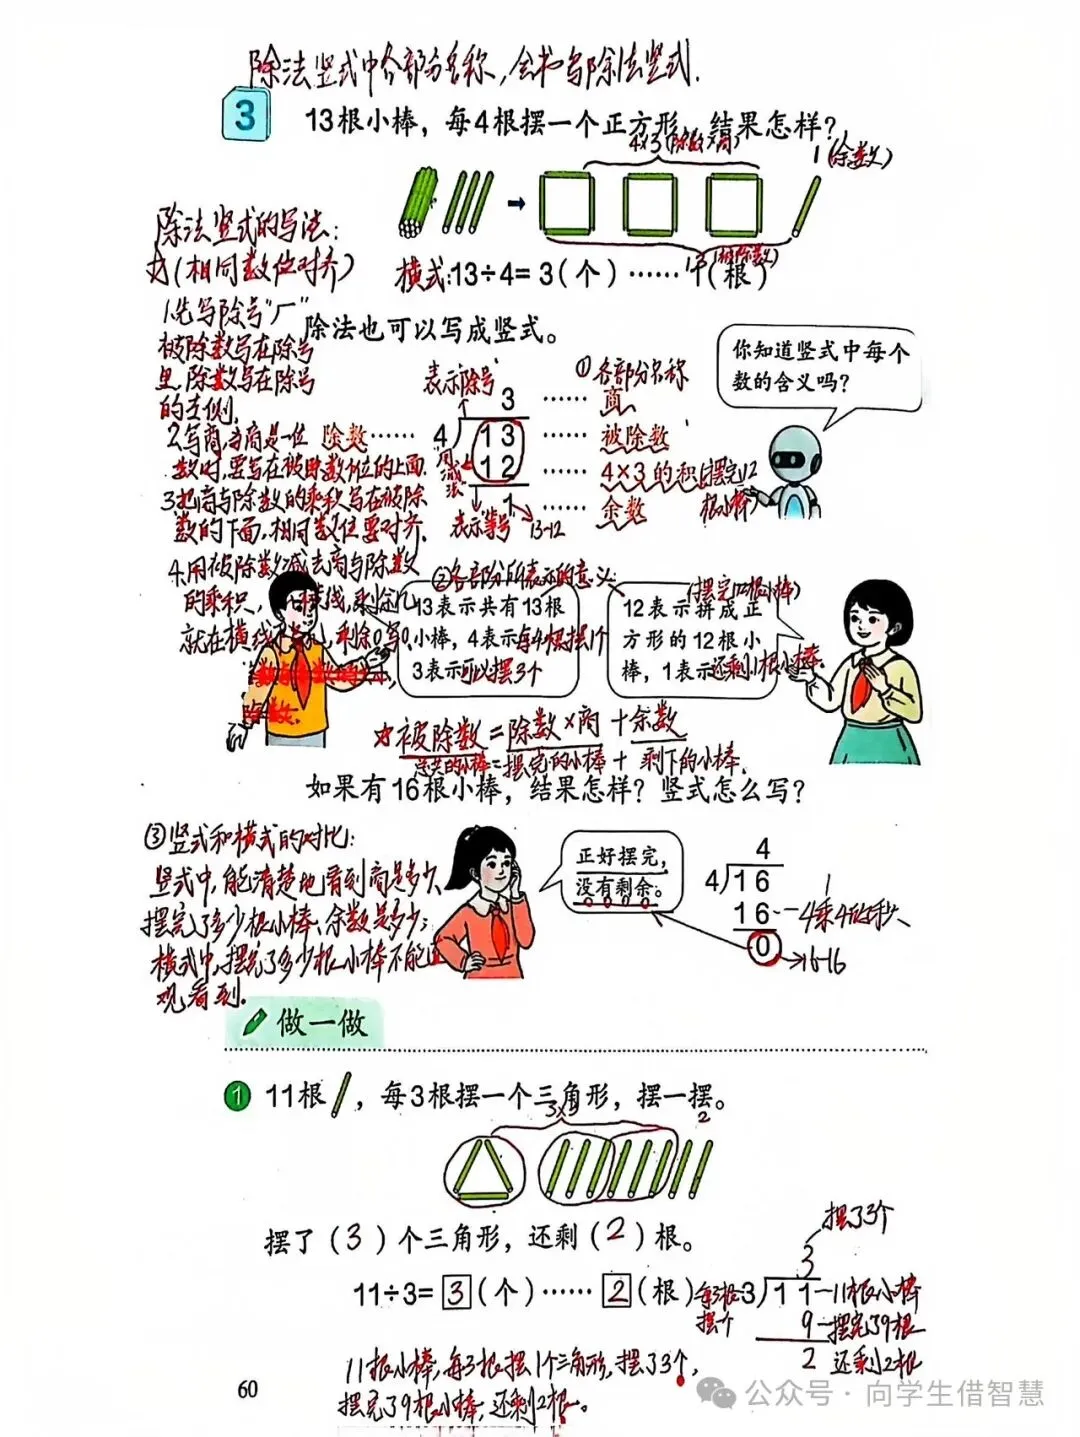 除法竖式中各部分名称,会书写除法竖式.
3
13根小棒，每4根摆一个正方形，结果怎样？
4×3(除数×商)
1(余数)
除法竖式的写法:
(相同数位对齐)
(被除数)
横式:13÷4= 3(个)……1(根)
1.先写除号"厂"
被除数写在除号
里,除数写在除号
的左侧.
除法也可以写成竖式。
你知道竖式中每个
数的含义吗？
表示除号
①各部分名称
3 …… 商
除数…… 4 13 …… 被除数
12 …… 4×3的积(摆完12
根小棒)
1 …… 余数
用减法
表示等号
13-12
2.写商,当商是一位
数时,要写在被除数个位的上面.
3.把商与除数的乘积写在被除
数的下面,相同数位要对齐.
4.用被除数减去商与除数
的乘积,
②各部分所表示的意义:
13表示共有13根
小棒，4表示每4根摆1个
3表示可以摆3个
(摆完12根小棒)
12表示拼成正
方形的12根小
棒，1表示还剩1根小棒.
除数.
被除数=除数×商+余数
总共的小棒=摆完的小棒+剩下的小棒.
如果有16根小棒，结果怎样？竖式怎么写？
③竖式和横式的对比:
竖式中,能清楚地看到商是多少、
摆完了多少根小棒、余数是多少;
横式中,摆完了多少根小棒不能直
观看到.
正好摆完，
没有剩余。
4
4 16
16 4乘4的积
0 16-16
做一做
1 11根 ，每3根摆一个三角形，摆一摆。
3×3
2
摆了（3）个三角形，还剩（2）根。
摆了3个
3
11÷3= 3 (个)…… 2 (根)
每3根
摆一个
3 11 11根小棒
9 摆完了9根
2 还剩2根
11根小棒,每3根摆1个三角形,摆了3个,
摆完了9根小棒,还剩2根。
60
公众号·向学生借智慧